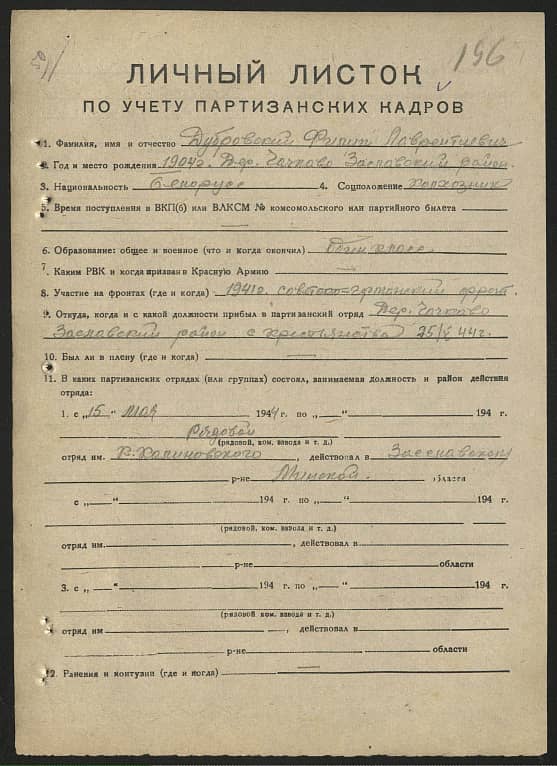 196
ЛИЧНЫЙ ЛИСТОК
ПО УЧЕТУ ПАРТИЗАНСКИХ КАДРОВ
1. Фамилия, имя и отчество Дубровский Филип Лаврентиевич
2. Год и место рождения 1904 г. Дер. Чачково Заславский район.
3. Национальность белорусс 4. Соцположение колхозник
5. Время поступления в ВКП(б) или ВЛКСМ № комсомольского или партийного билета —
6. Образование: общее и военное (что и когда окончил)
7. Каким РВК и когда призван в Красную Армию —
8. Участие на фронтах (где и когда) 1941 г. советско=германский фронт.
9. Откуда, когда и с какой должности прибыл в партизанский отряд Дер. Чачково
Заславский район с крестьянства 25/V 44 г.
10. Был ли в плену (где и когда) —
11. В каких партизанских отрядах (или группах) состоял, занимаемая должность и район действия
отряда:
1. с „15" мая 1944 г. по „—" 194 г.
Рядовой
(рядовой, ком. взвода и т. д.)
отряд им. К. Калиновского, действовал в Заславском
р-не Минской. области
с „—" 194 г. по „—" 194 г.
(рядовой, ком. взвода и т. д.)
отряд им. , действовал в
р-не области
3. с „—" 194 г. по „—" 194 г.
(рядовой, ком. взвода и т. д.)
отряд им , действовал в
р-не области
12. Ранения и контузии (где и когда) —